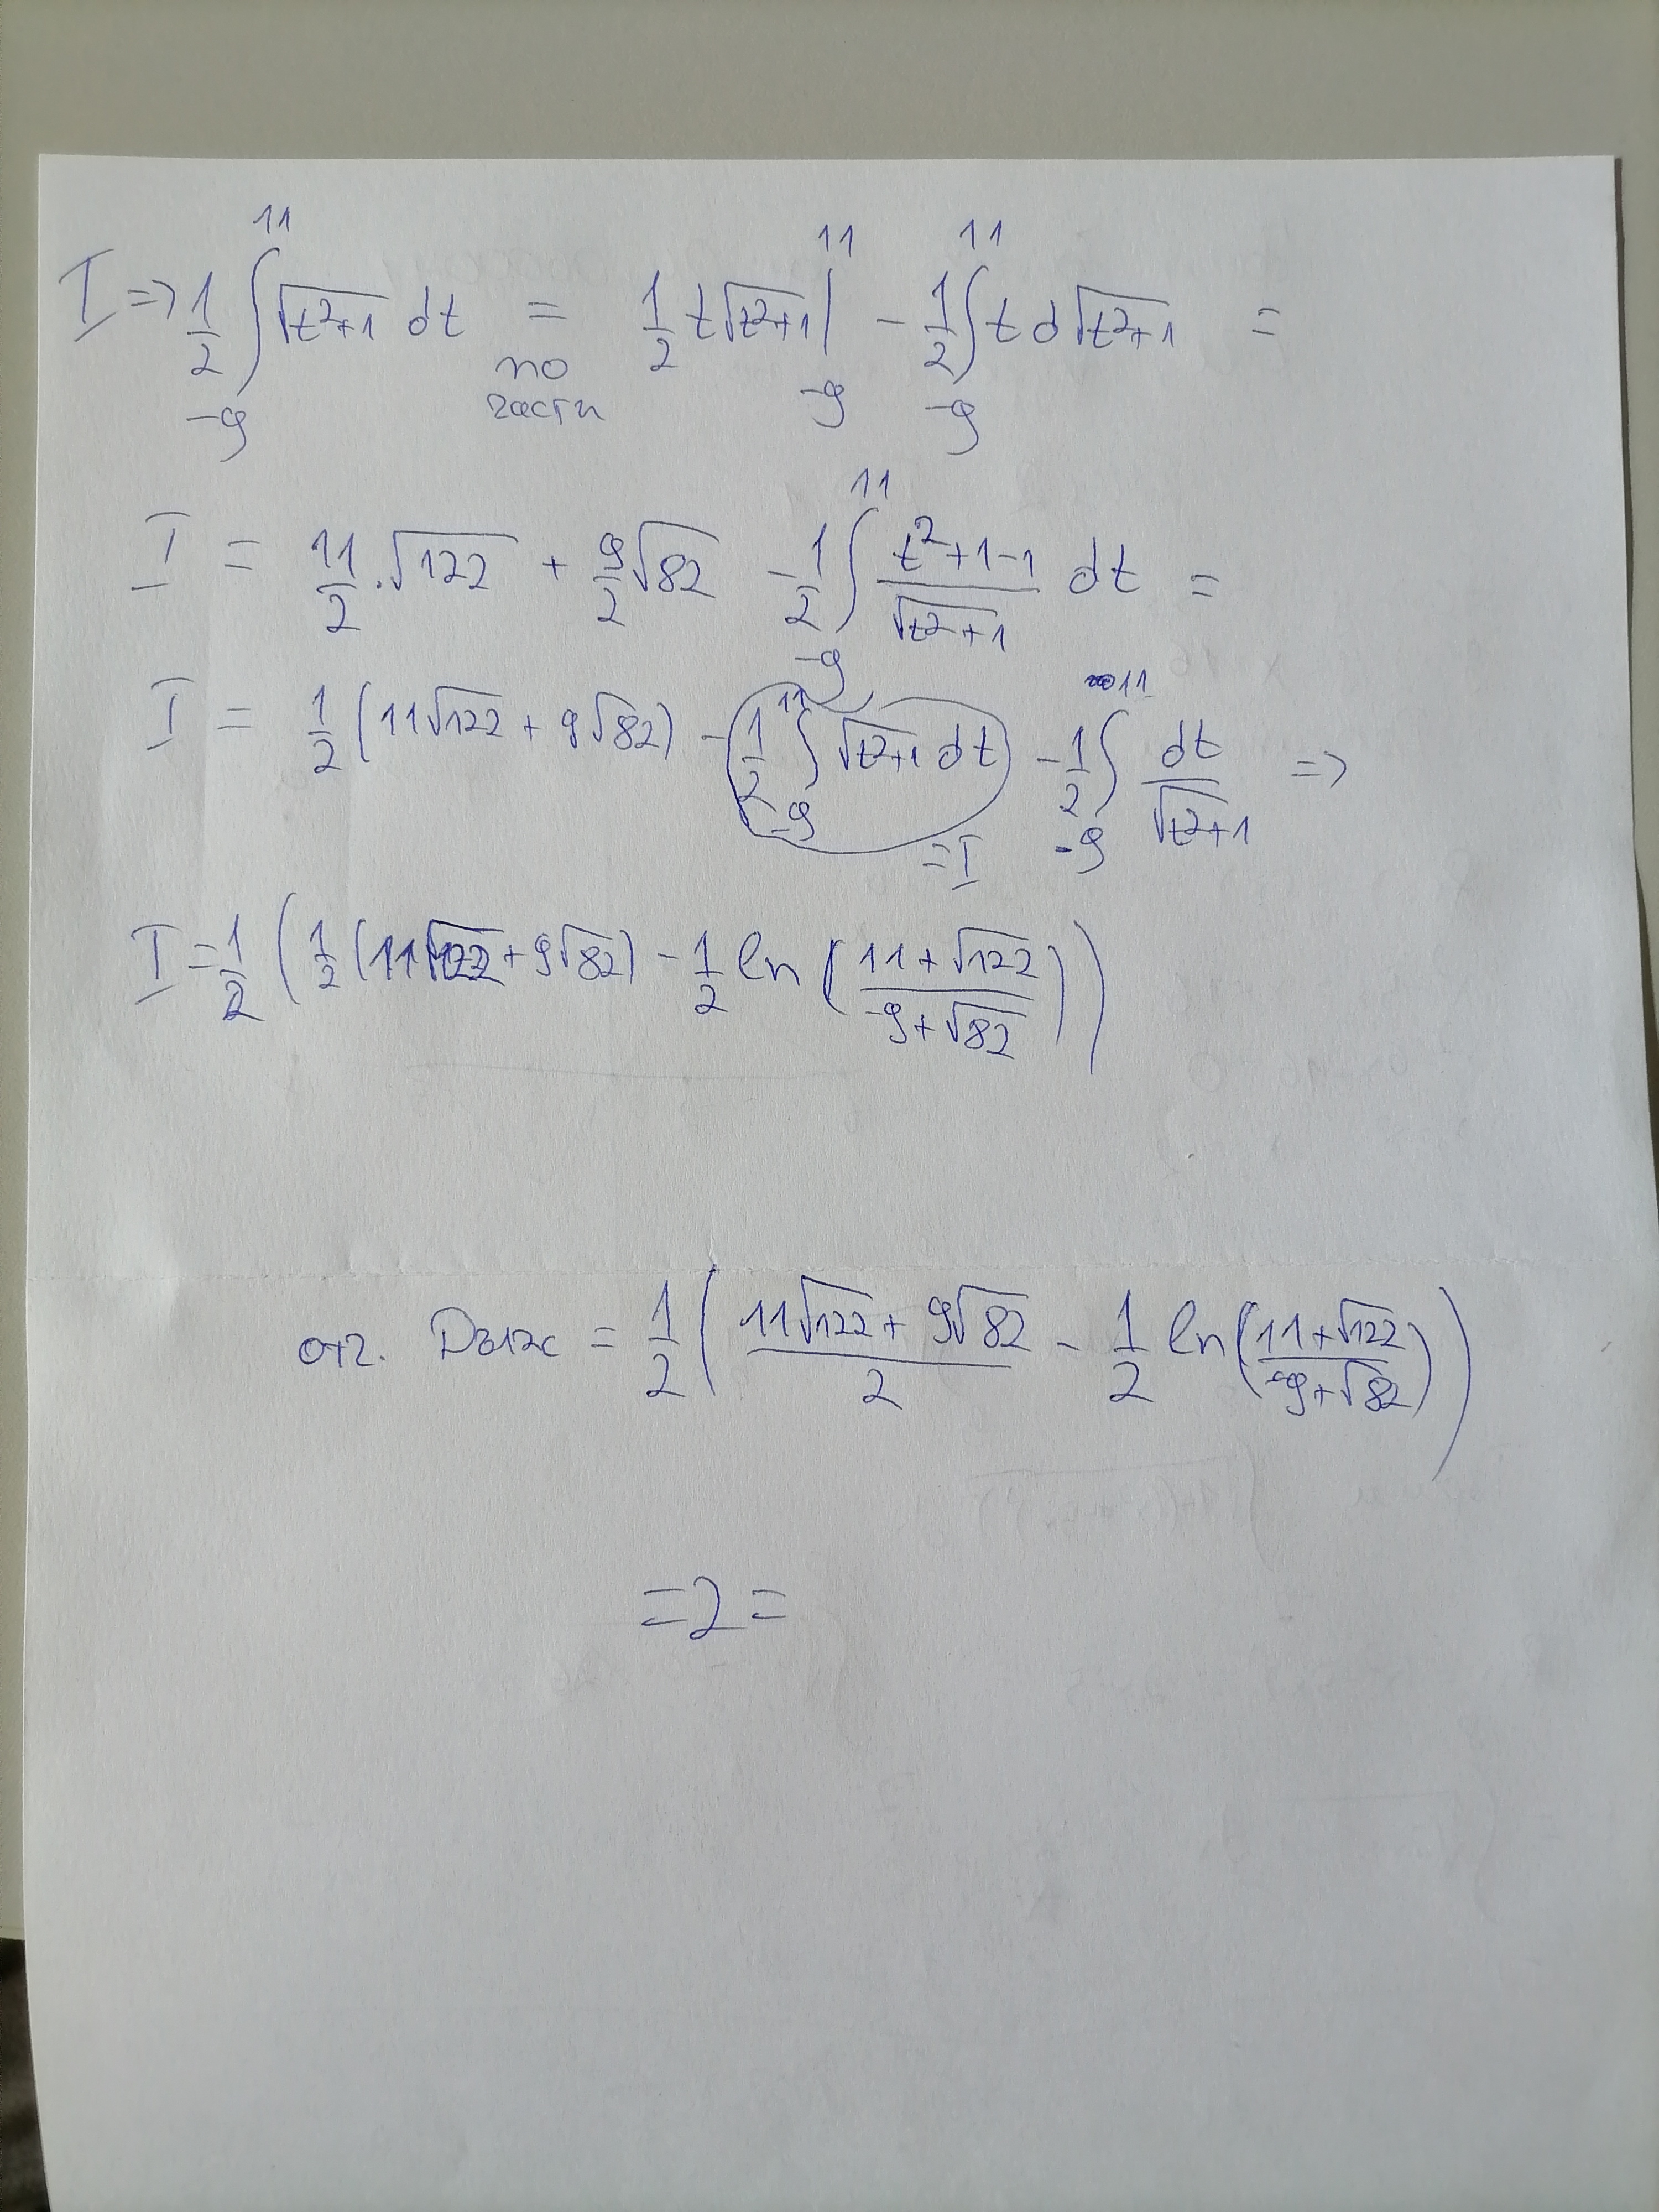 I => 1/2 ∫_{-9}^{11} √(t²+1) dt = по части 1/2 t√(t²+1) |_{-9}^{11} - 1/2 ∫_{-9}^{11} t d√(t²+1) =
I = 11/2 . √122 + 9/2 √82 - 1/2 ∫_{-9}^{11} (t²+1-1)/√(t²+1) dt =
I = 1/2 (11√122 + 9√82) - 1/2 ∫_{-9}^{11} √(t²+1) dt = I - 1/2 ∫_{-9}^{11} dt/√(t²+1) =>
I = 1/2 (1/2 (11√122 + 9√82) - 1/2 ln ((11+√122)/(-9+√82)))
отг. Дълж = 1/2 ((11√122 + 9√82)/2 - 1/2 ln ((11+√122)/(-9+√82)))
=2=